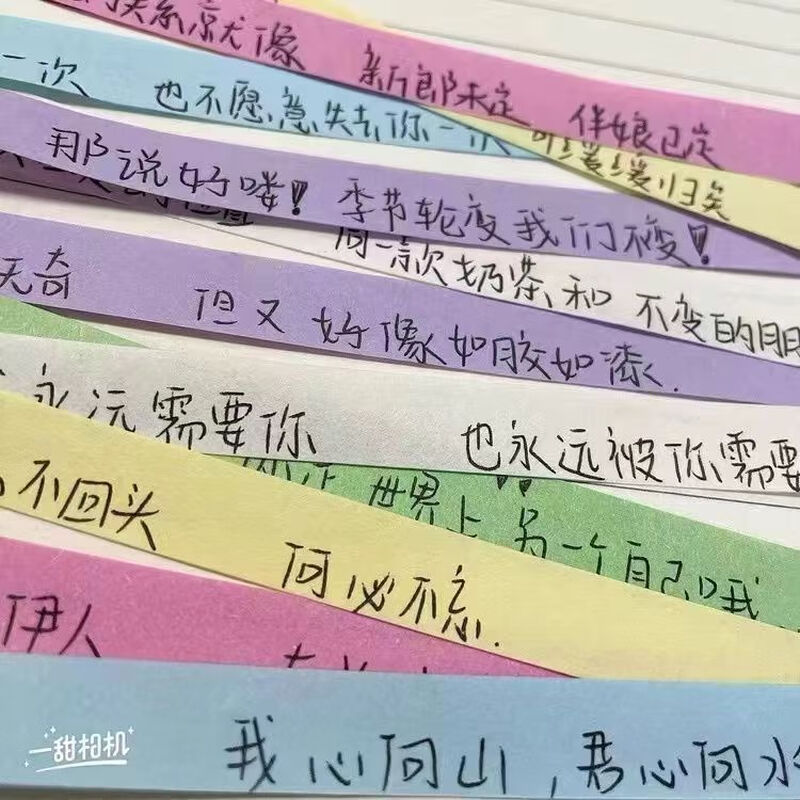 关系就像 新郎未定 伴娘已定
一次 也不愿意失去你一次
可缓缓归矣
那说好喽! 季节轮变我们不变!
同一款奶茶和 不变的
无奇 但又好像如胶如漆.
永远需要你 也永远被你需要
世界上另一个自己哦
不回头 何必不忘.
伊人
我心向山,君心向水
一甜相机